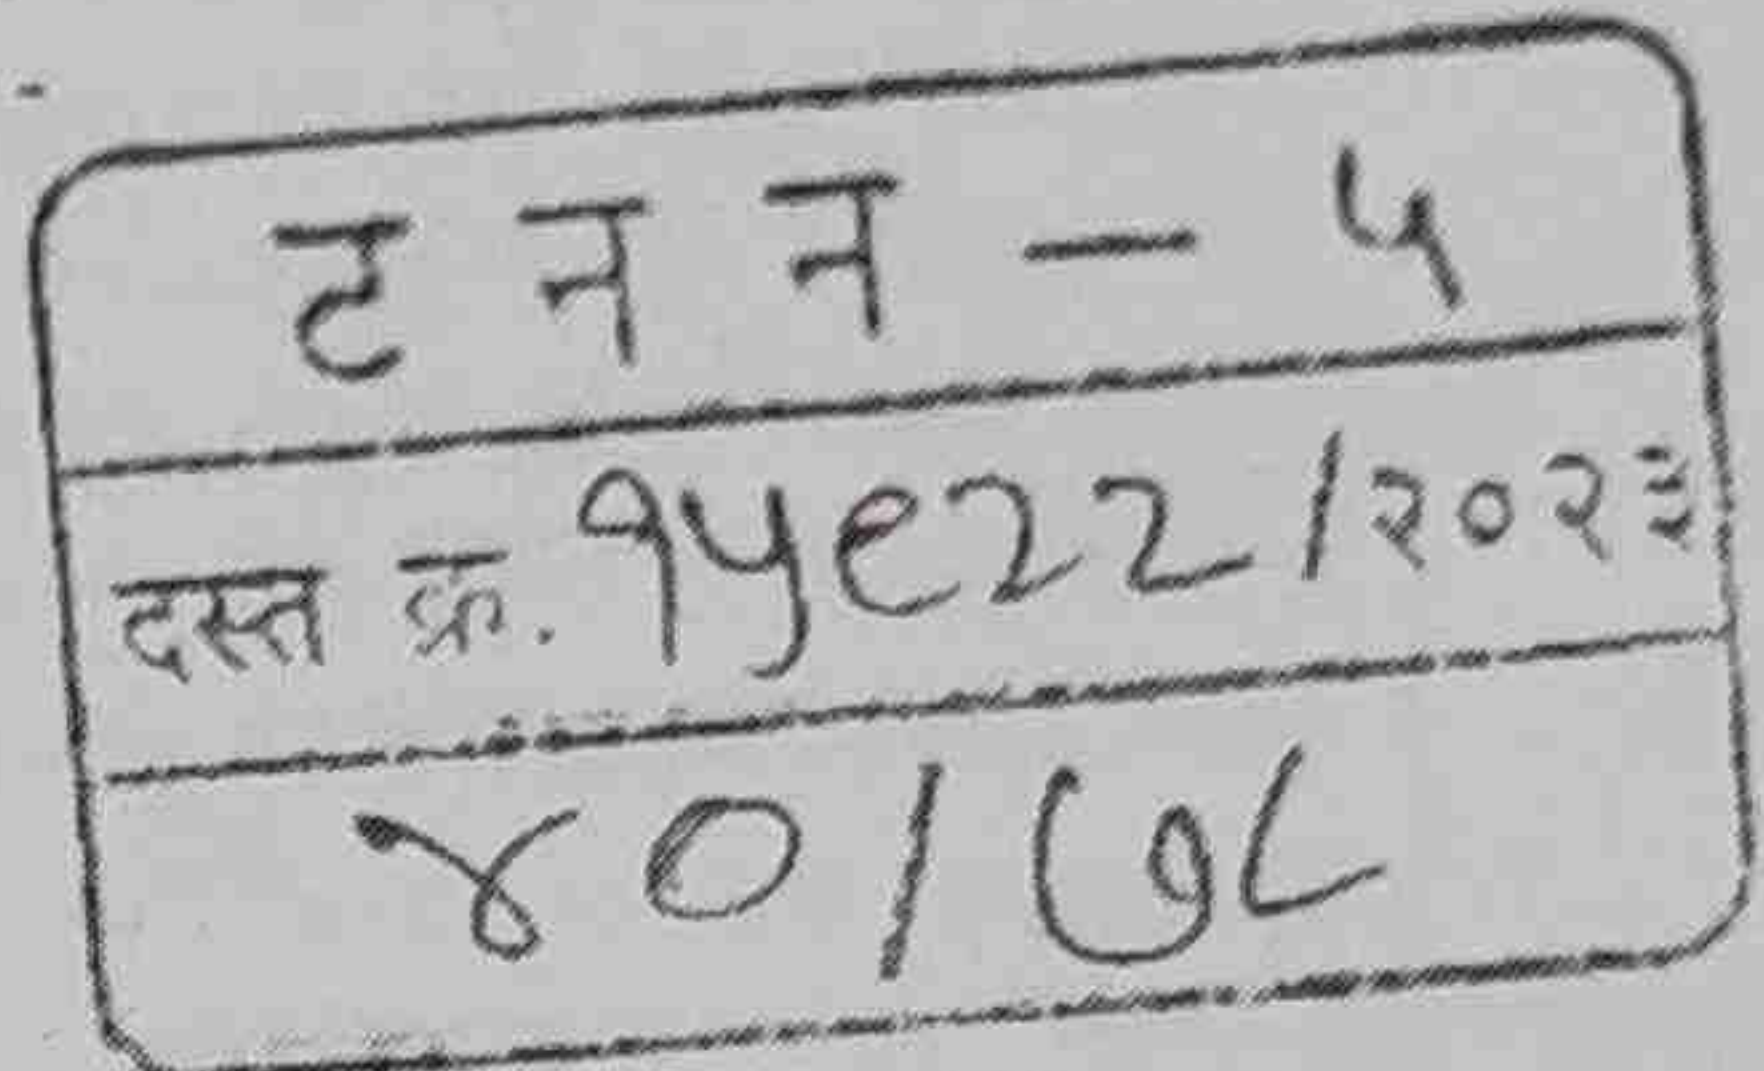 ट न न - ५
दस्त क्र. १५९२२ / २०२३
४० / ७८